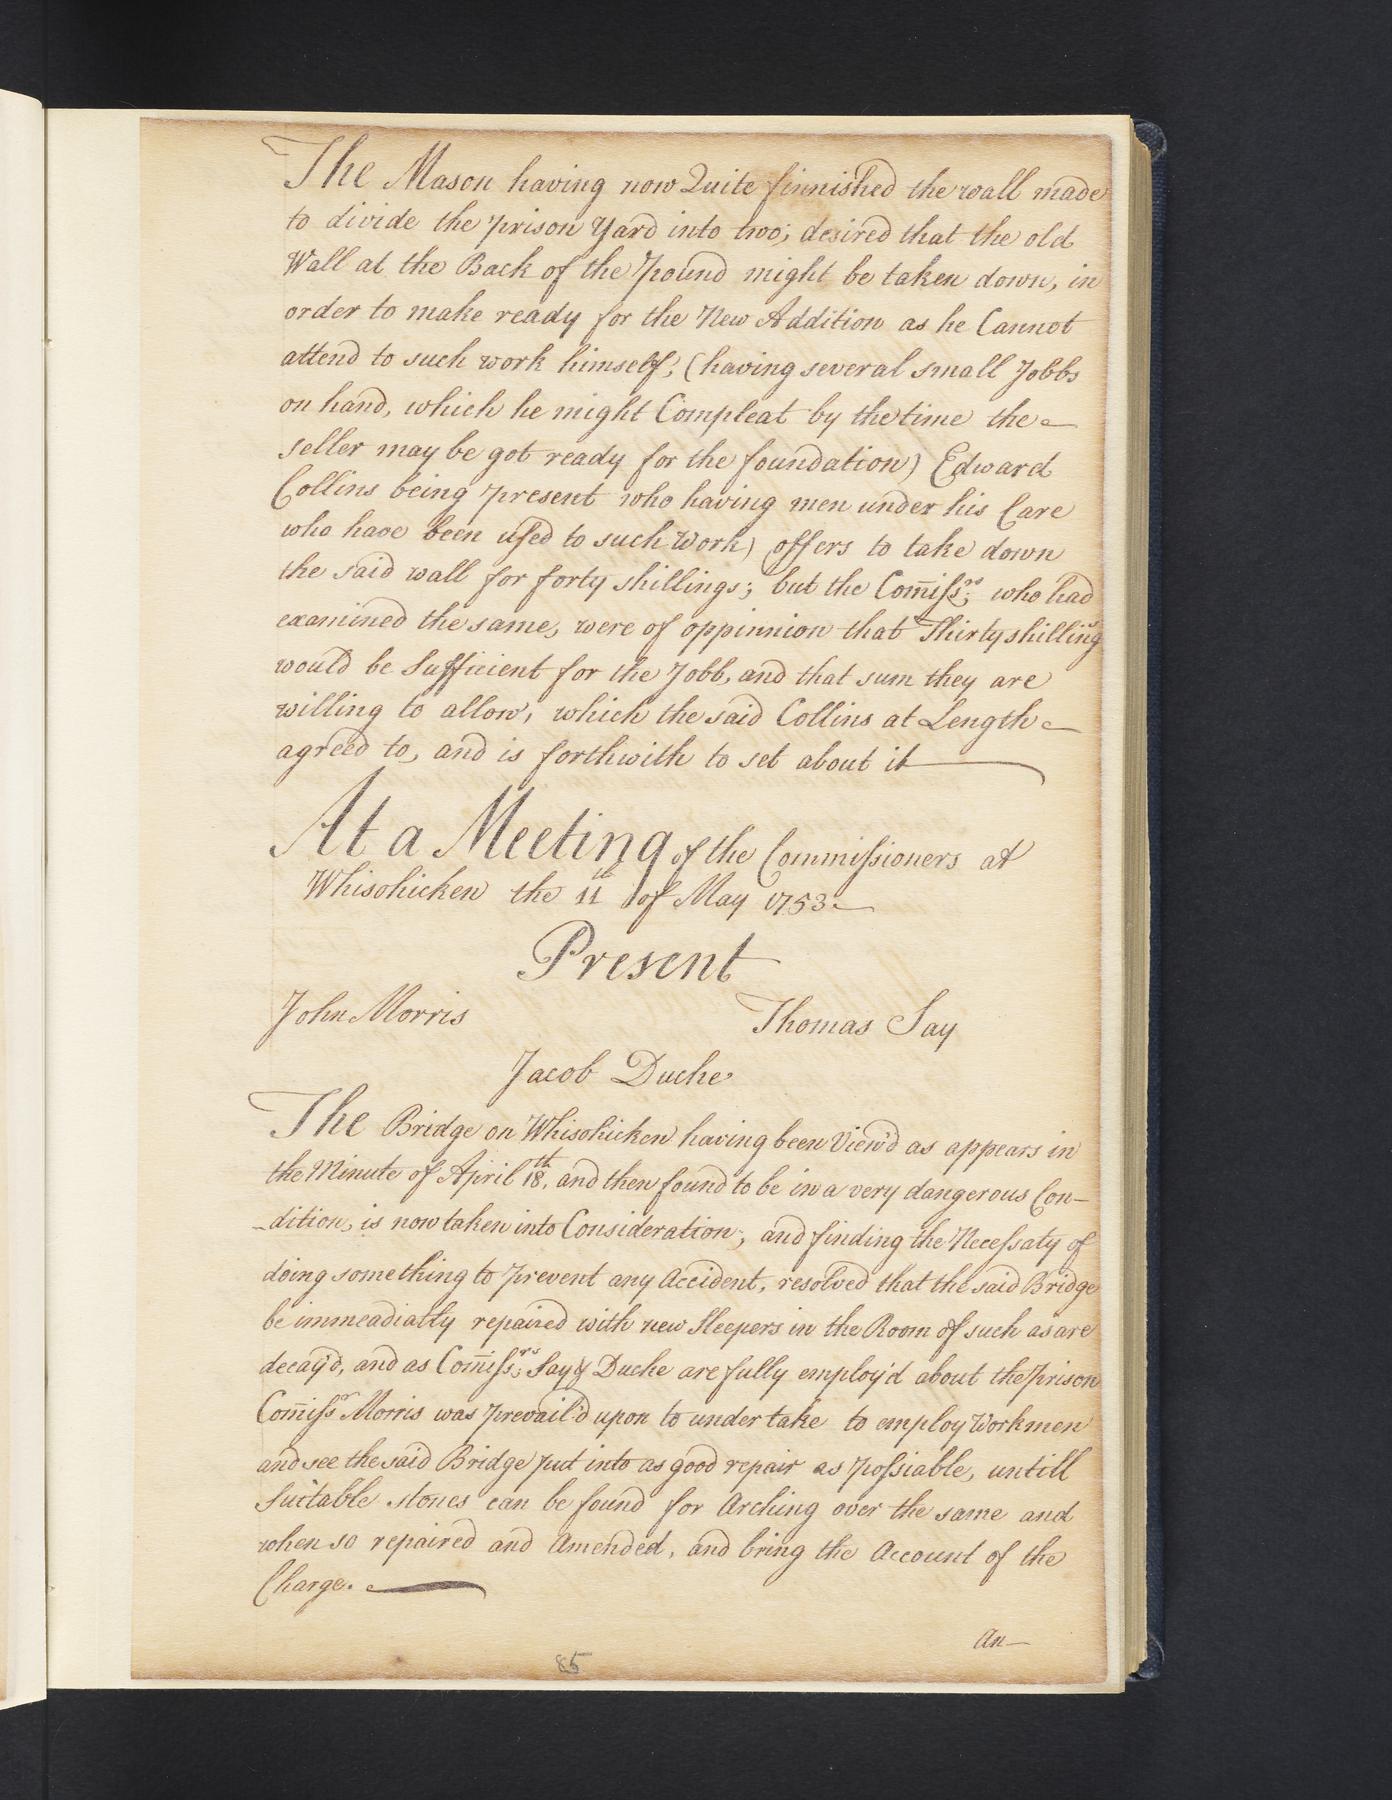 The Mason having now Quite finnished the wall made
to divide the prison Yard into two; desired that the old
Wall at the Back of the Pound might be taken down, in
order to make ready for the New Addition as he Cannot
attend to such work himself; (having several small Jobbs
on hand, which he might Compleat by the time the
seller may be got ready for the foundation) Edward
Collins being present who having men under his Care
who have been used to such Work) offers to take down
the said wall for forty shillings; but the Com̄issrs; who had
examined the same, were of oppinnion that Thirty shillings
would be Sufficient for the Jobb, and that sum they are
willing to allow, which the said Collins at Length
agreed to, and is forthwith to set about it
At a Meeting of the Commissioners at
Whisohicken the 11th of May 1753
Present
John Morris Thomas Say
Jacob Duche
The Bridge on Whisohicken having been View'd as appears in
the Minute of April 18th, and then found to be in a very dangerous Con-
-dition, is now taken into Consideration; and finding the Necessaty of
doing something to prevent any Accident, resolved that the said Bridge
be immeadiatly repaired with new Sleepers in the Room of such as are
decay'd, and as Com̄issrs; Say & Duche are fully employ'd about the Prison
Com̄issr Morris was prevail'd upon to under take to employ Workmen
and see the said Bridge put into as good repair as possiable, untill
Suitable stones can be found for Arching over the same and
when so repaired and Amended, and bring the Account of the
Charge.
An-
85